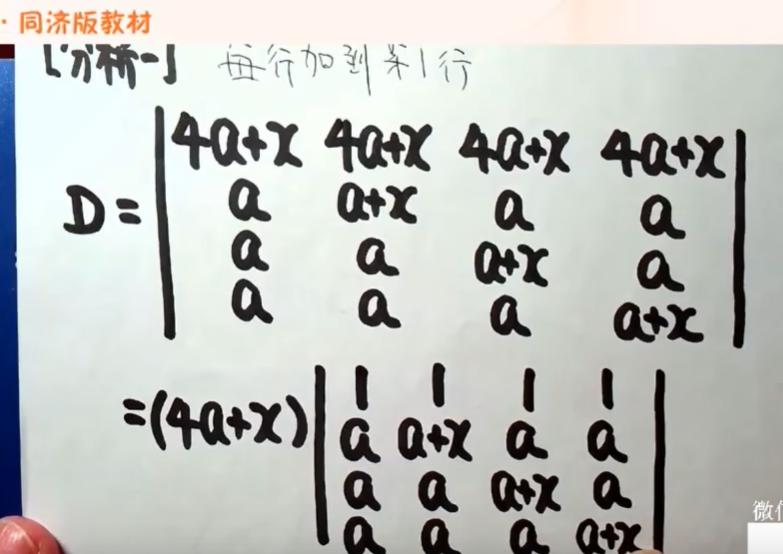 · 同济版教材
[分析一] 每行加到第1行
4a+x 4a+x 4a+x 4a+x
D= a a+x a a
a a a+x a
a a a a+x
1 1 1 1
=(4a+x) a a+x a a
a a a+x a
a a a a+x
微信